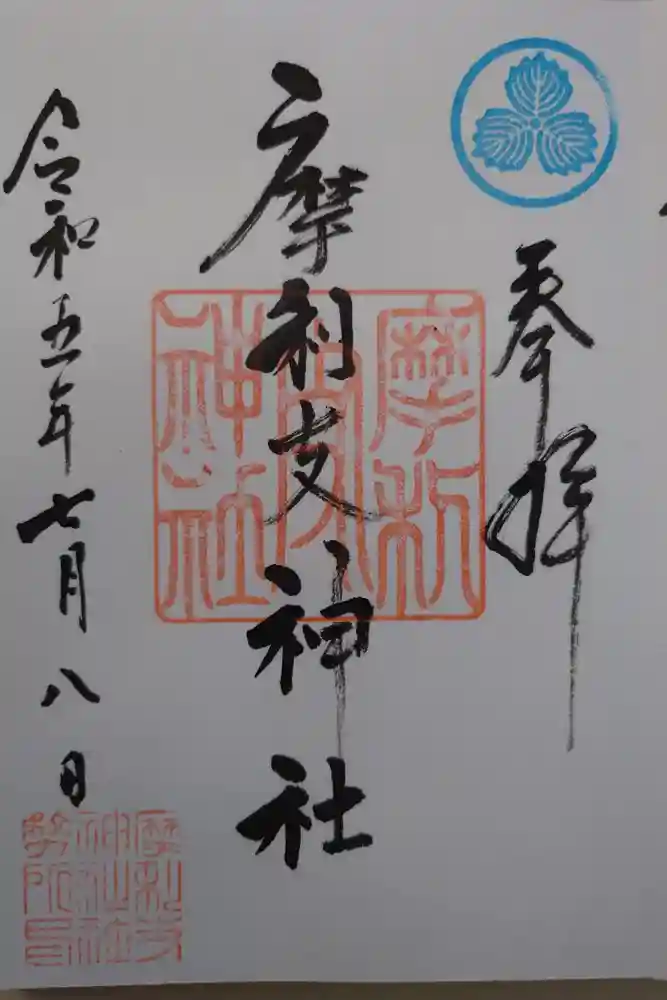 奉拝
摩利支神社
令和五年七月八日
摩利支神社
摩利支神社社務所印